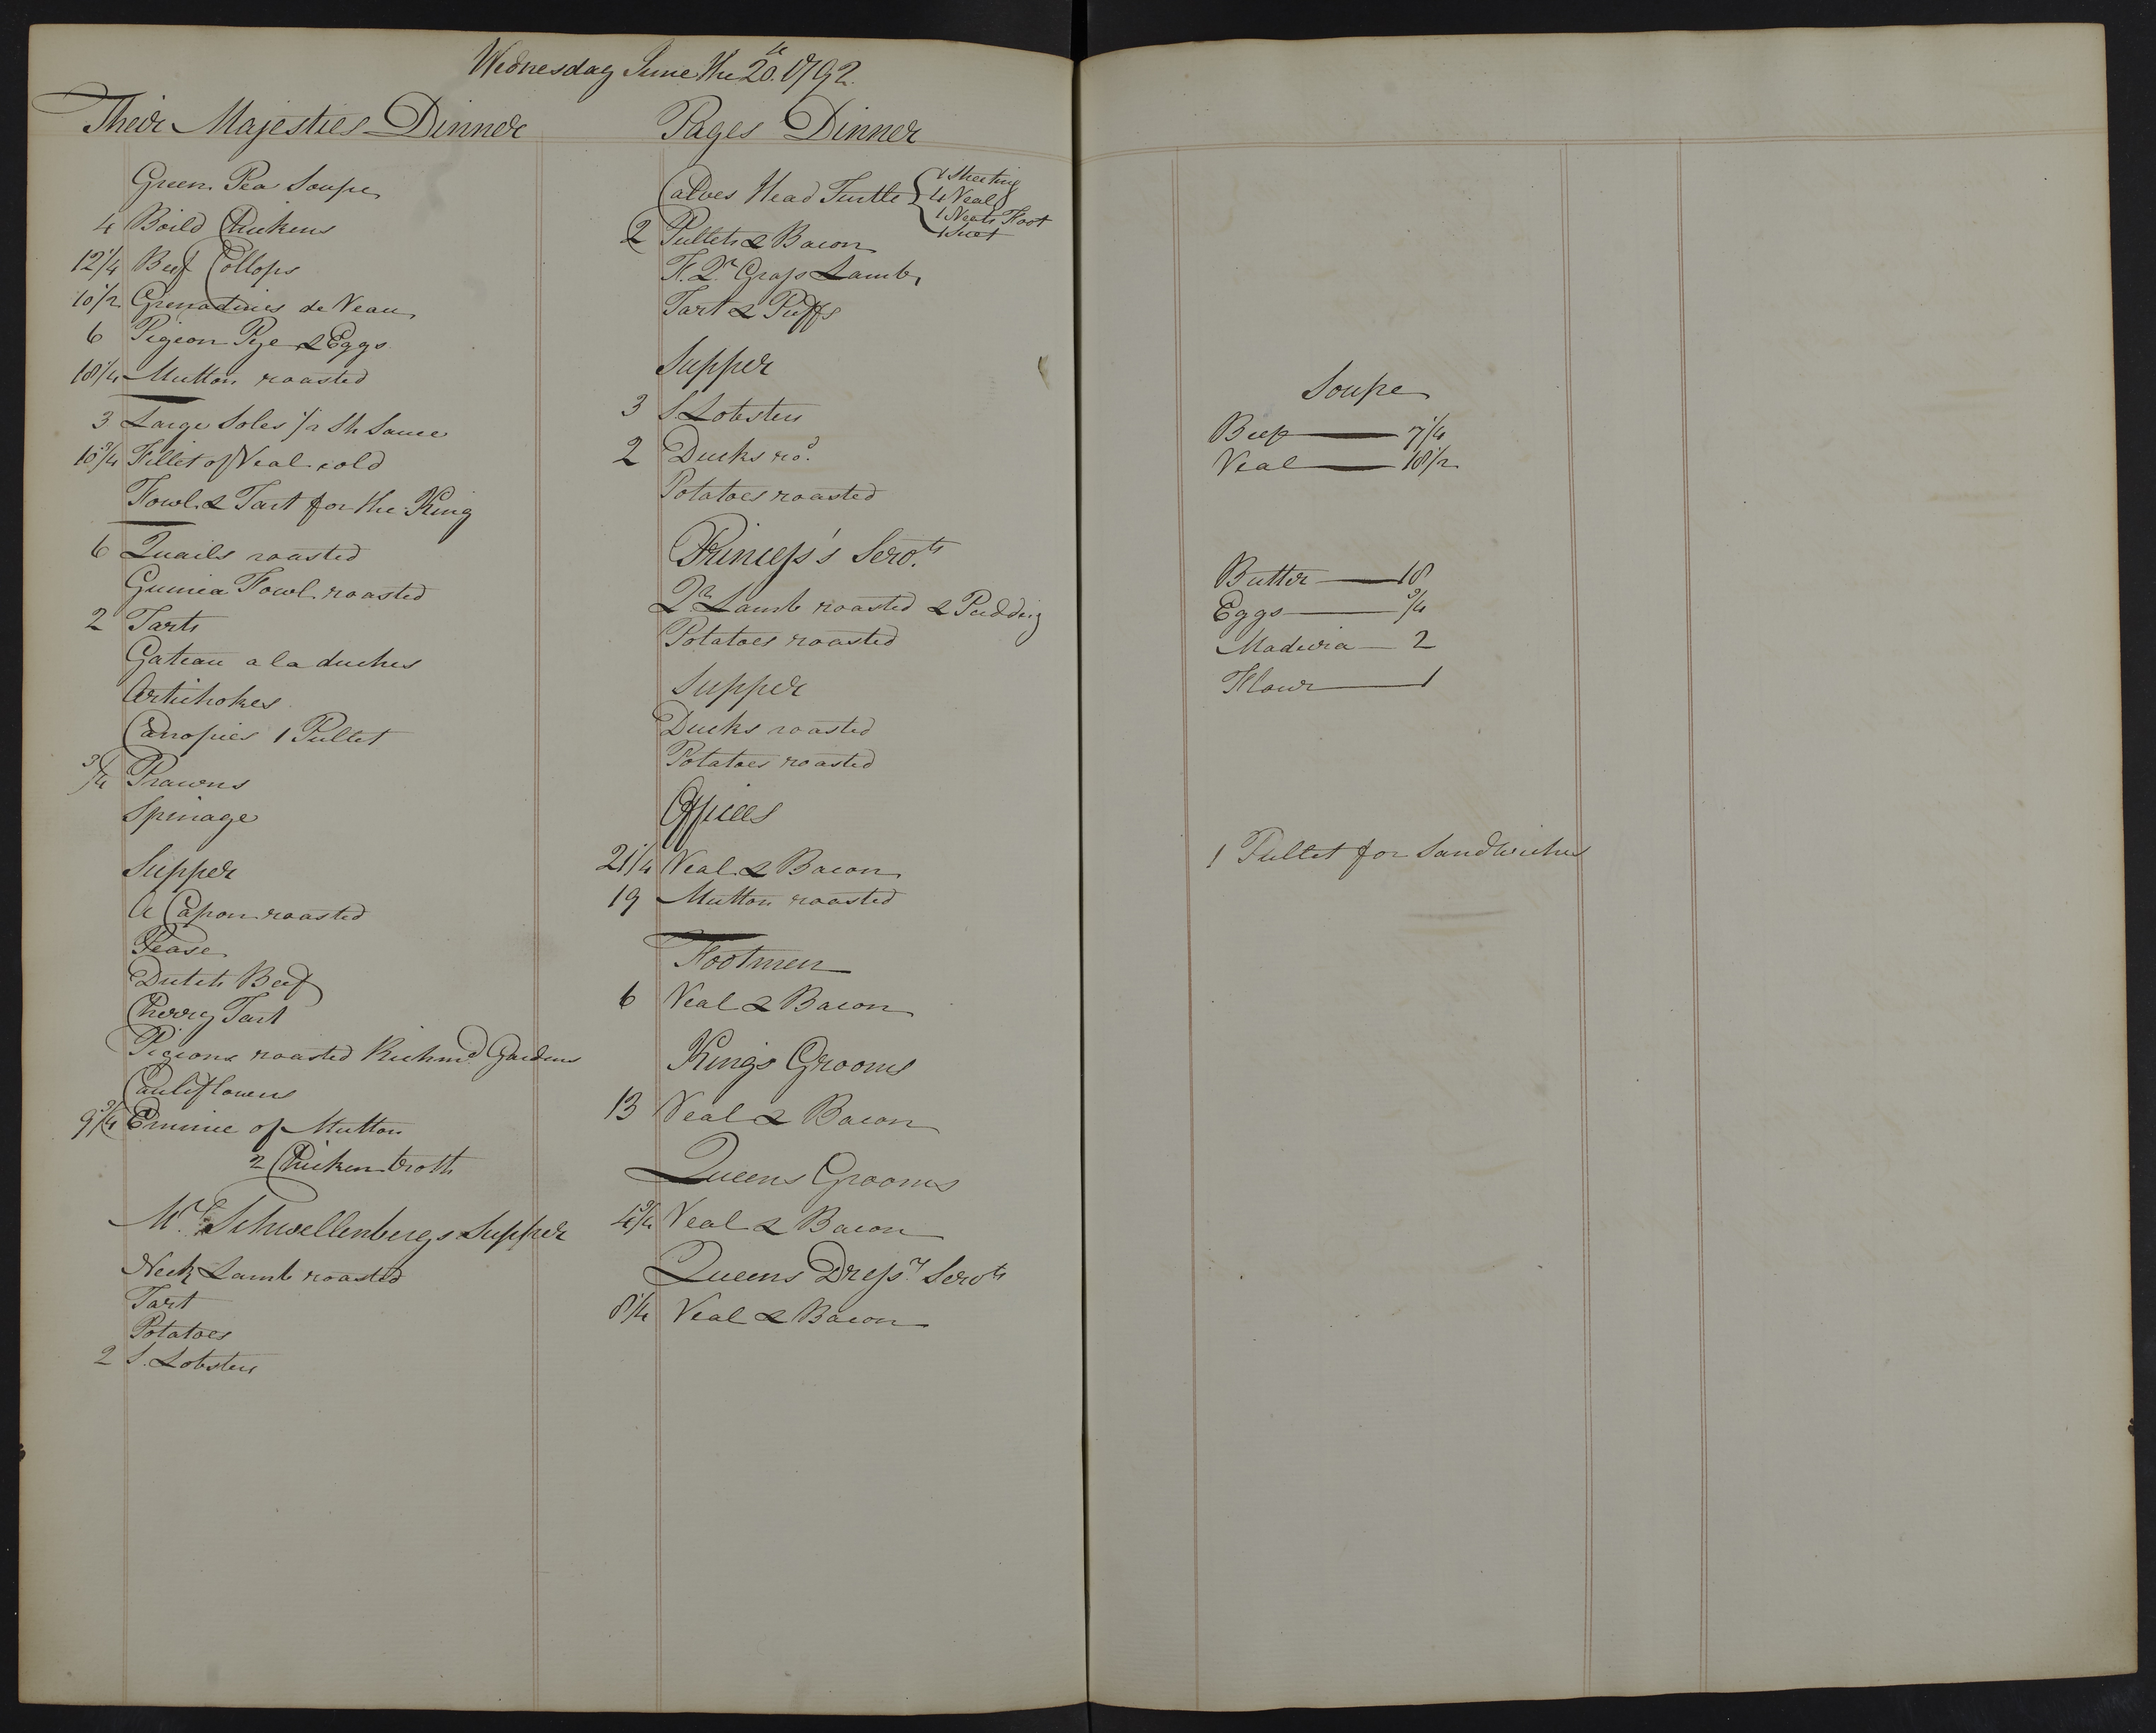 Wednesday June the 20th. 1792.
Their Majesties Dinner
Green Pea Soupe
4 Boild Chickens
12 1/4 Beef Collops
10 1/2 Grenadines de Veau
6 Pigeon Pye & Eggs
18 1/4 Mutton roasted
3 Large Soles 1/2 Sh Sauce
10 3/4 Fillet of Veal cold
Fowl & Tart for the King
6 Quails roasted
Guinea Fowl roasted
2 Tarts
Gateau a la duches
Artichokes
Canopies 1 Pullet
3/4 Prawns
Spinage
Supper
A Capon roasted
Pease
Dutch Beef
Cherry Tart
Pigeons roasted Richmd Gardens
Cauliflowers
9 3/4 Emmie of Mutton
2 Chicken broth
Mrs. Schwellenbergs Supper
Neck Lamb roasted
Tart
Potatoes
2 S. Lobsters
Pages Dinner
Calves Head Turtle { 1 Skeeting
4 Veal
1 Neats Foot
1 Suet
2 Pullets & Bacon
F. Qr. Grass Lamb
Tart & Puffs
Supper
3 S. Lobsters
2 Ducks rod.
Potatoes roasted
Princess's Servts.
Qr Lamb roasted & Pudding
Potatoes roasted
Supper
Ducks roasted
Potatoes roasted
Offices
21 1/4 Veal & Bacon
19 Mutton roasted
Footmen
6 Veal & Bacon
Kings Grooms
13 Veal & Bacon
Queens Grooms
4 3/4 Veal & Bacon
Queens Dressr. Servts
8 1/4 Veal & Bacon
Soupe
Beef — 7 1/4
Veal — 18 1/2
Butter — 18
Eggs — 3/4
Madeira — 2
Flour — 1
1 Pullet for Sandwiches